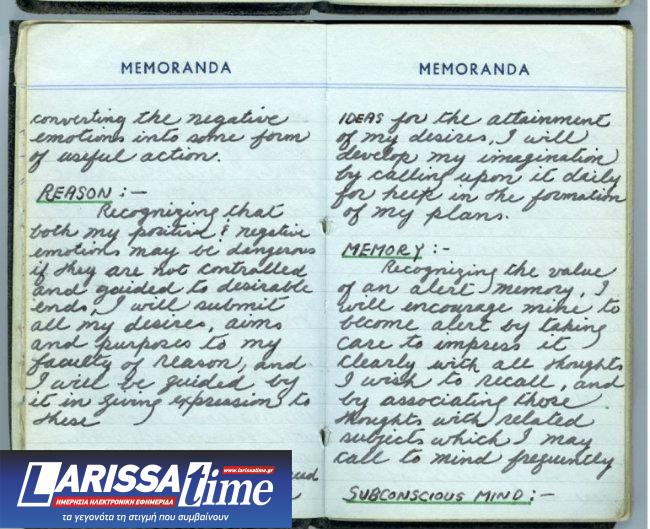 MEMORANDA
converting the negative
emotions into some form
of useful action.
REASON :-
Recognizing that
both my positive & negative
emotions may be dangerous
if they are not controlled
and guided to desirable
ends, I will submit
all my desires, aims
and purposes to my
faculty of reason, and
I will be guided by
it in giving expression to
these
MEMORANDA
IDEAS for the attainment
of my desires, I will
develop my imagination
by calling upon it daily
for help in the formation
of my plans.
MEMORY :-
Recognizing the value
of an alert memory, I
will encourage mine to
become alert by taking
care to impress it
clearly with all thoughts
I wish to recall, and
by associating those
thoughts with related
subjects which I may
call to mind frequently
SUBCONSCIOUS MIND :-
www.larissatime.gr
LARISSAtime
ΗΜΕΡΗΣΙΑ ΗΛΕΚΤΡΟΝΙΚΗ ΕΦΗΜΕΡΙΔΑ
τα γεγονότα τη στιγμή που συμβαίνουν